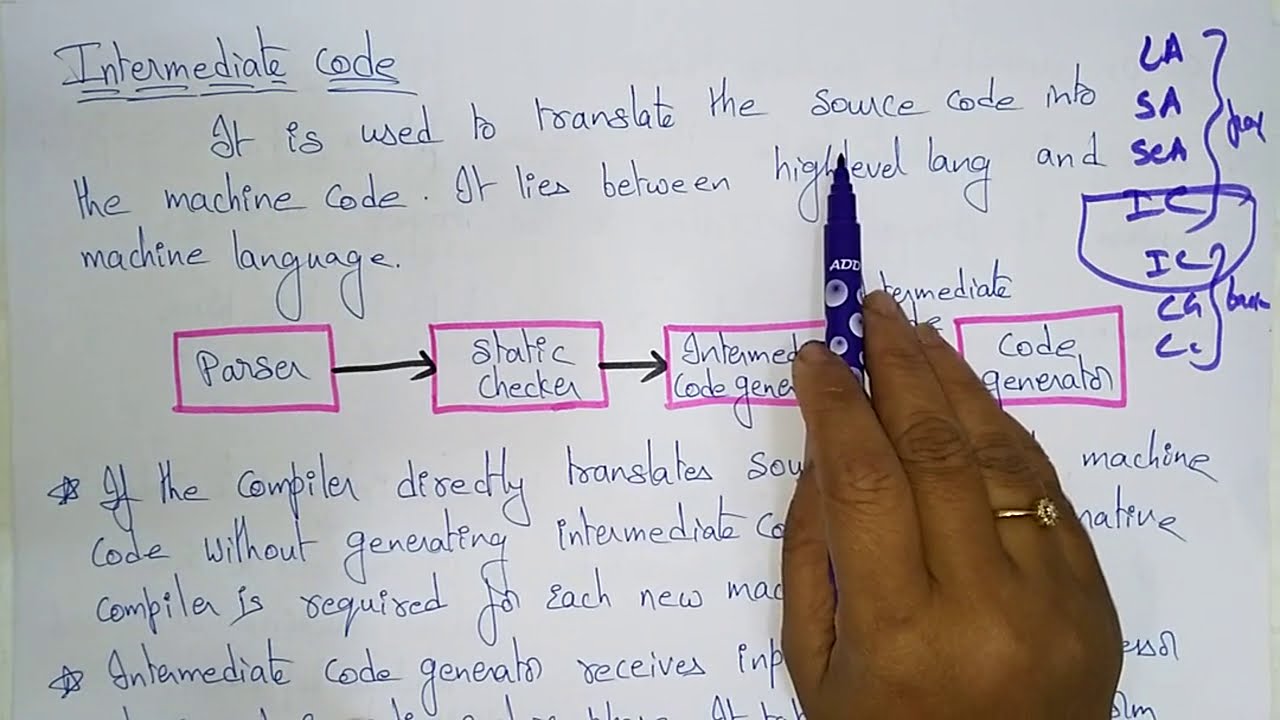 Intermediate Code
It is used to translate the source code into
the machine code. It lies between high level lang and
machine language.
LA
SA
ScA
IC
IC
CG
ADD
intermediate
Parser
static
checker
Intermed
Code gene
Code
generator
If the compiler directly translates sou machine
code without generating intermediate co native
compiler is required for each new mac
Intermediate code generator receives inp essor